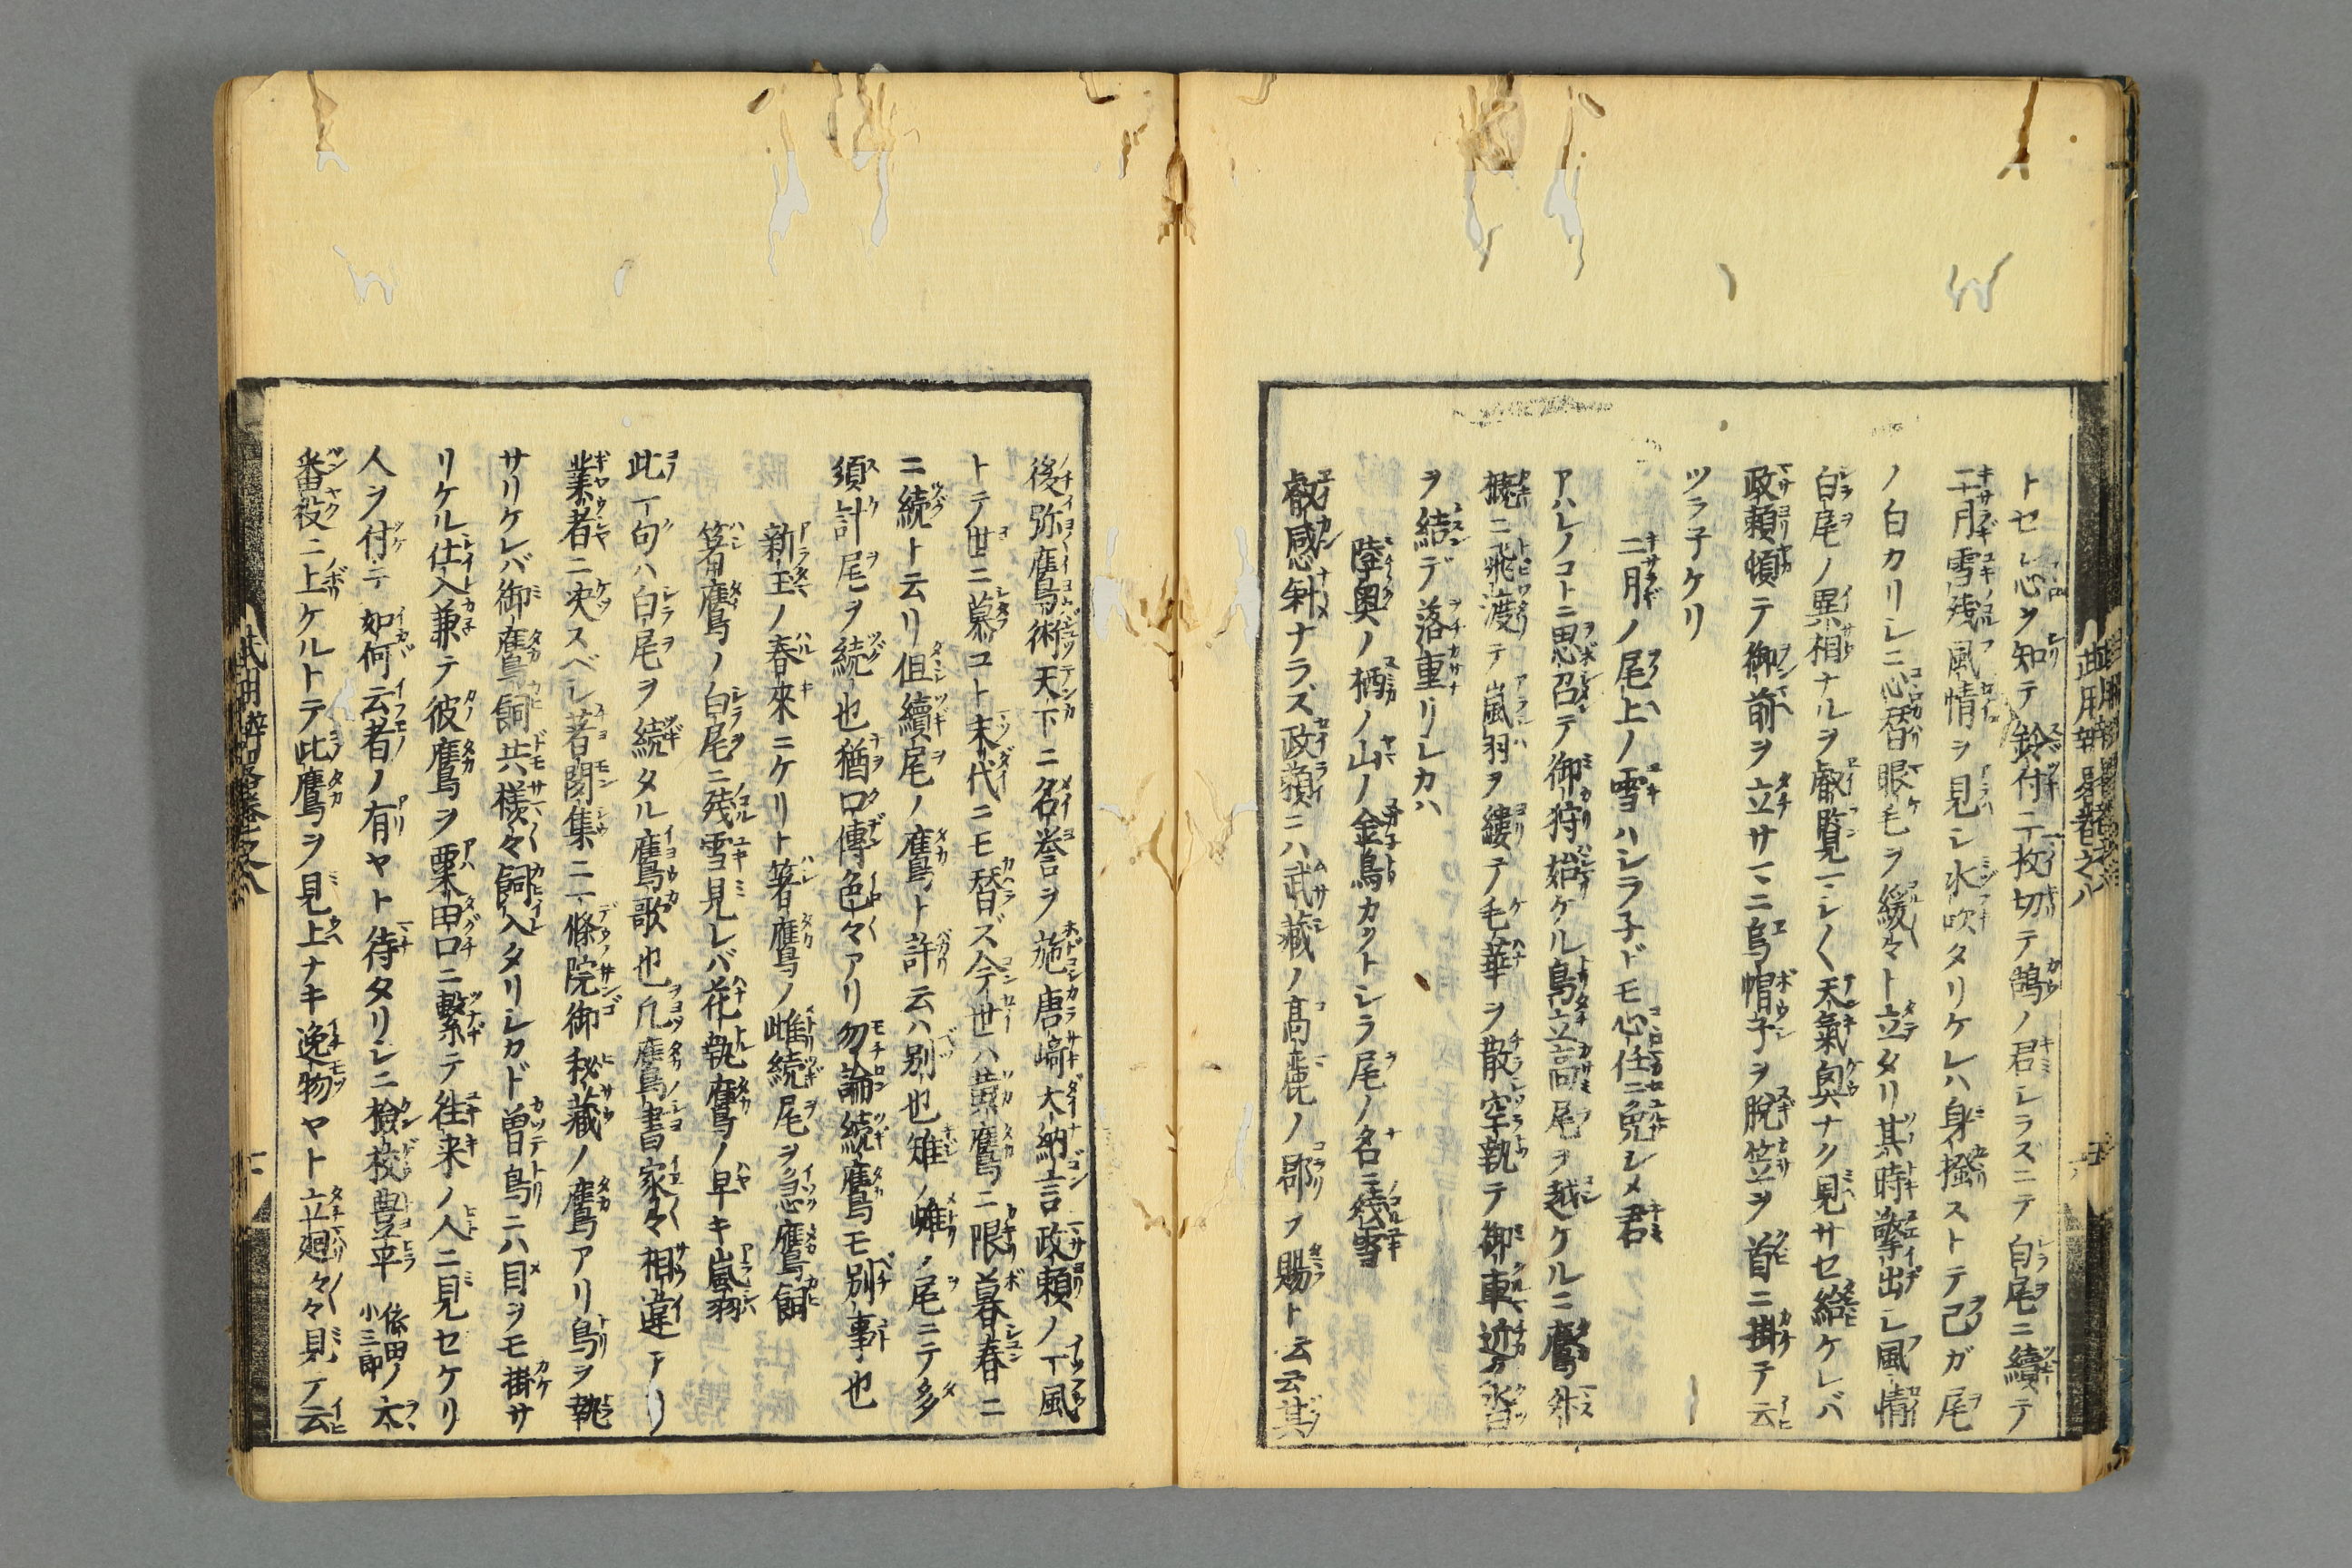 トセレ心ヲ知テ鈴付ニ枚切テ鵠ノ君シラズニテ白尾ニ續テ
二月雪残風情ヲ見シ水吹タリケレハ身撥ストテ己ガ尾
ノ白カリシニ心替眼毛ヲ緩々ト立タリ其時擎出シ風情
白尾ノ異相ナルヲ叡覧マシ〱天氣奥ナク見サセ給ケレバ
政頼傾テ御前ヲ立サマニ烏帽子ヲ脱笠ヲ首ニ掛テ云
二月ノ尾上ノ雪ハシラ子ドモ心任ニ免シメ君
ツラ子ケリ
アハレノコトニ思召テ御狩始ケル鳥立高尾ヲ越ケルニ鷹外
ニ飛渡テ嵐羽ヲ縷テ毛華ヲ散空執テ御車近ガ沓
ヲ結デ落重リシカハ
陸奥ノ栖ノ山ノ金鳥カットシラ尾ノ名ニ残雪
叡感斜ナラズ政頼ニハ武藏ノ高麗ノ郡ヲ賜ト云云其
後弥鷹術天下ニ名誉ヲ施唐﨑大納言政頼ノ一風
トテ世ニ慕コト末代ニモ替ズ今世ハ黄鷹ニ限暮春ニ
ニ続ト云リ但續尾ノ鷹ト許云ハ別也雉ノ雌ノ尾ニテ多
須計尾ヲ続也猶口傳色々アリ勿論続鷹モ別事也
新玉ノ春來ニケリト箸鷹ノ雌続尾ヲ急鷹飼
箸鷹ノ白尾ニ残雪見レバ花執鷹ノ早キ嵐羽
此一句ハ白尾ヲ続タル鷹歌也凡鷹書家々相違アリ
業者ニ决スベシ著聞集ニ一條院御秘藏ノ鷹アリ鳥ヲ執
サリケレバ御鷹飼共様々飼入タリシカド曽鳥ニハ目ヲモ掛サ
リケル仕入兼テ彼鷹ヲ粟田口ニ繋テ往来ノ人ニ見セケリ
人ヲ付テ如何云者ノ有ヤト待タリシニ撿挍豊平依田ノ太小三郎
番役ニ上ケルトテ此鷹ヲ見上ナキ逸物ヤト立廻々々見テ云